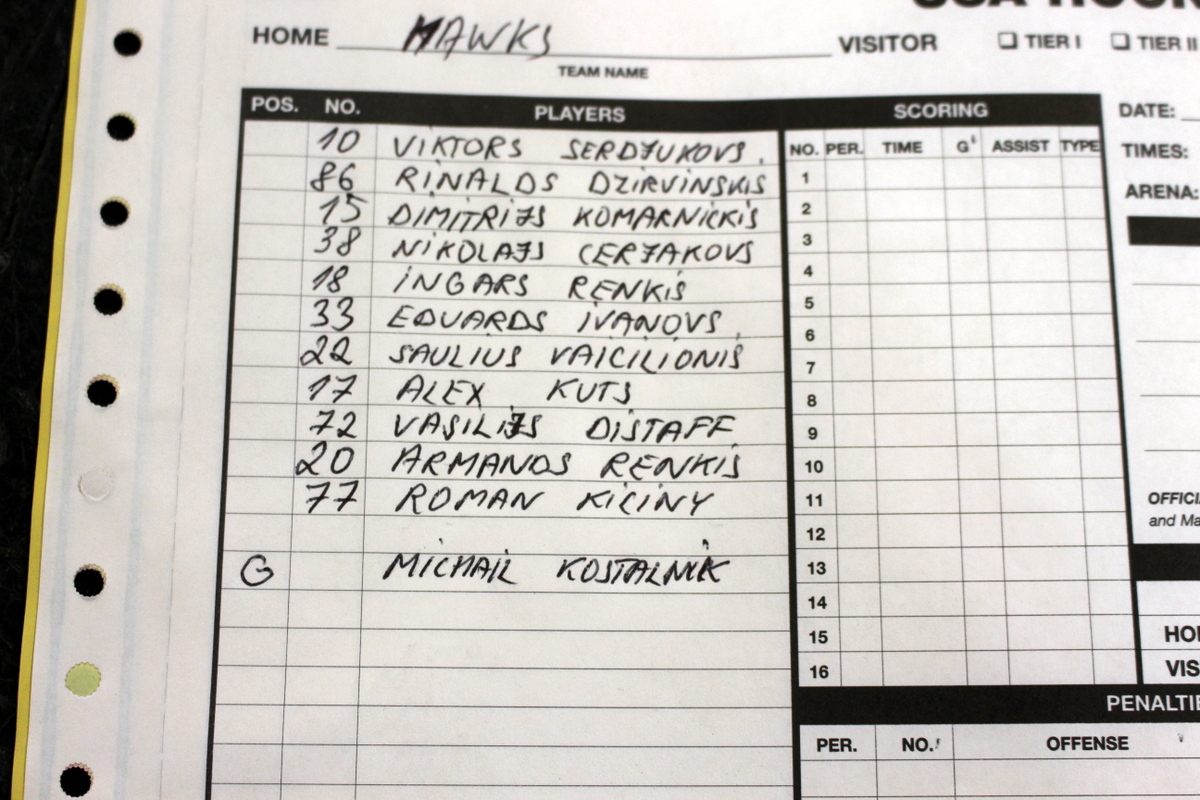 HOME HAWKS VISITOR ☐ TIER I ☐ TIER II
TEAM NAME
POS. NO. PLAYERS SCORING
DATE:
10 VIKTORS SERDJUKOVS
NO. PER. TIME G ASSIST TYPE
TIMES:
86 RINALDS DZIRVINSKIS
1
ARENA:
15 DIMITRIJS KOMARNICKIS
2
38 NIKOLAJS CERJAKOVS
3
18 INGARS RENKIS
4
33 EDUARDS IVANOVS
5
22 SAULIUS VAICILIONIS
6
17 ALEX KUTS
7
72 VASILIJS DISTAFF
8
20 ARMANDS RENKIS
9
77 ROMAN KICINY
10
11
12
G MICHAIL KOSTALNIK
13
14
15
16
and Ma
PENALTIE
PER. NO. OFFENSE